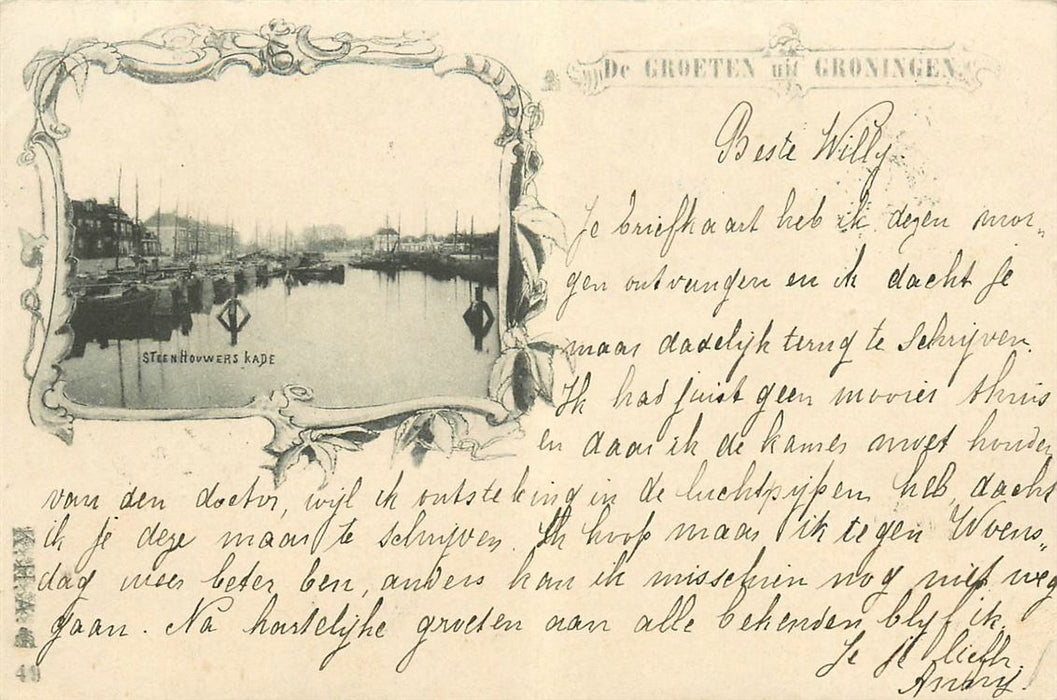 De GROETEN uit GRONINGEN.
STEENHOUWERSKADE
Beste Willy.
Je briefkaart heb ik dezen mor-
gen ontvangen en ik dacht je
maar dadelijk terug te schrijven.
Ik had juist geen mooier thuis
en daar ik de kamer moet houden
van den doctor, wijl ik ontsteking in de luchtpijpen heb, dacht
ik je deze maar te schrijven. Ik hoop maar ik tegen Woens-
dag weer beter ben, anders kan ik misschien nog niet weg
gaan. Na hartelijke groeten aan alle bekenden blijf ik,
Je je liefh.
K.H.A.G.
49